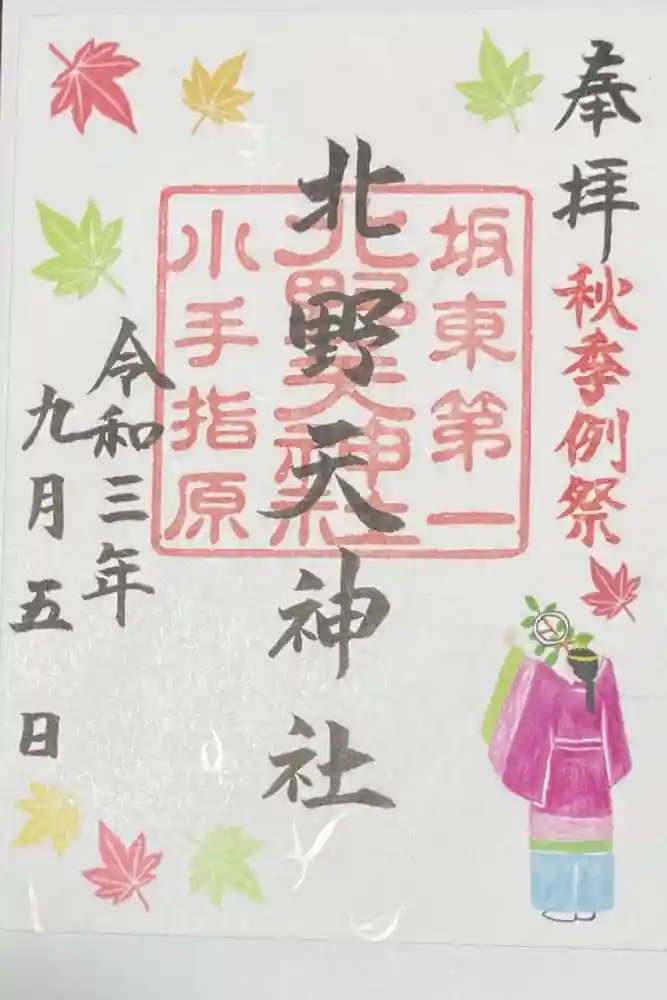 奉拝
秋季例祭
北野天神社
坂東第一
北野天神社
小手指原
令和三年
九月五日